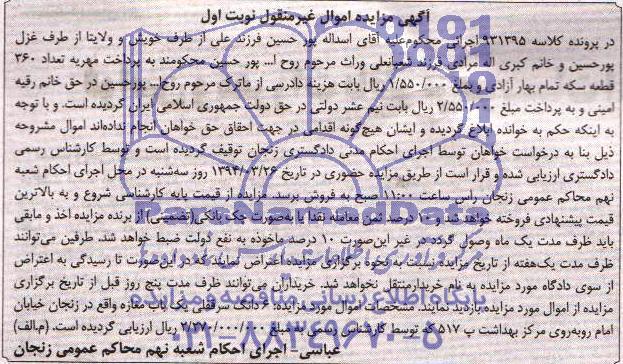 آگهی مزایده اموال غیرمنقول نوبت اول
در پرونده کلاسه ۹۳۱۳۹۵ اجرائی محکوم‌علیه آقای اسداله پور حسین فرزند علی از طرف خویش و ولایتا از طرف غزل
پورحسین و خانم کبری اله مرادی فرزند شعبانعلی وراث مرحوم روح ا... پور حسین محکومند به پرداخت مهریه تعداد ۳۶۰
قطعه سکه تمام بهار آزادی و مبلغ ۱/۵۵۰/۰۰۰ ریال بابت هزینه دادرسی از ماترک مرحوم روح ا... پورحسین در حق خانم رقیه
امینی و به پرداخت مبلغ ۲/۵۵۰/۰۰۰ ریال بابت نیم عشر دولتی در حق دولت جمهوری اسلامی ایران گردیده است. و با توجه
به اینکه حکم به خوانده ابلاغ گردیده و ایشان هیچ‌گونه اقدامی در جهت احقاق حق خواهان انجام نداده‌اند اموال مشروحه
ذیل بنا به درخواست خواهان توسط اجرای احکام مدنی دادگستری زنجان توقیف گردیده است و توسط کارشناس رسمی
دادگستری ارزیابی شده و قرار است از طریق مزایده حضوری در تاریخ ۱۳۹۴/۰۳/۲۶ روز سه‌شنبه در محل اجرای احکام شعبه
نهم محاکم عمومی زنجان راس ساعت ۱۱:۰۰ صبح به فروش برسد. مزایده از قیمت پایه کارشناسی شروع و به بالاترین
قیمت پیشنهادی فروخته خواهد شد و ۱۰ درصد ثمن معامله نقدا یا به‌صورت چک بانکی (تضمینی) از برنده مزایده اخذ و مابقی
باید ظرف مدت یک ماه وصول گردد در غیر این‌صورت ۱۰ درصد ماخوذه به نفع دولت ضبط خواهد شد. طرفین می‌توانند
ظرف مدت یک‌هفته از تاریخ مزایده نسبت به نحوه برگزاری مزایده اعتراض نمایند که در این‌صورت تا رسیدگی به اعتراض
از سوی دادگاه مورد مزایده به نام خریدار منتقل نخواهد شد. خریداران می‌توانند ظرف مدت پنج روز قبل از تاریخ برگزاری
مزایده از اموال مورد مزایده بازدید نمایند. مشخصات اموال مورد مزایده: ۶ دانگ سرقفلی یک باب مغازه واقع در زنجان خیابان
امام روبه‌روی مرکز بهداشت پ ۵۱۷ که توسط کارشناس رسمی به مبلغ ۲/۲۷۰/۰۰۰/۰۰۰ ریال ارزیابی گردیده است. (م.الف)
عباسی - اجرای احکام شعبه نهم محاکم عمومی زنجان
پایگاه اطلاع رسانی مناقصه و مزایده
۰۲۱-۸۸۳۴۹۶۷۰-۵